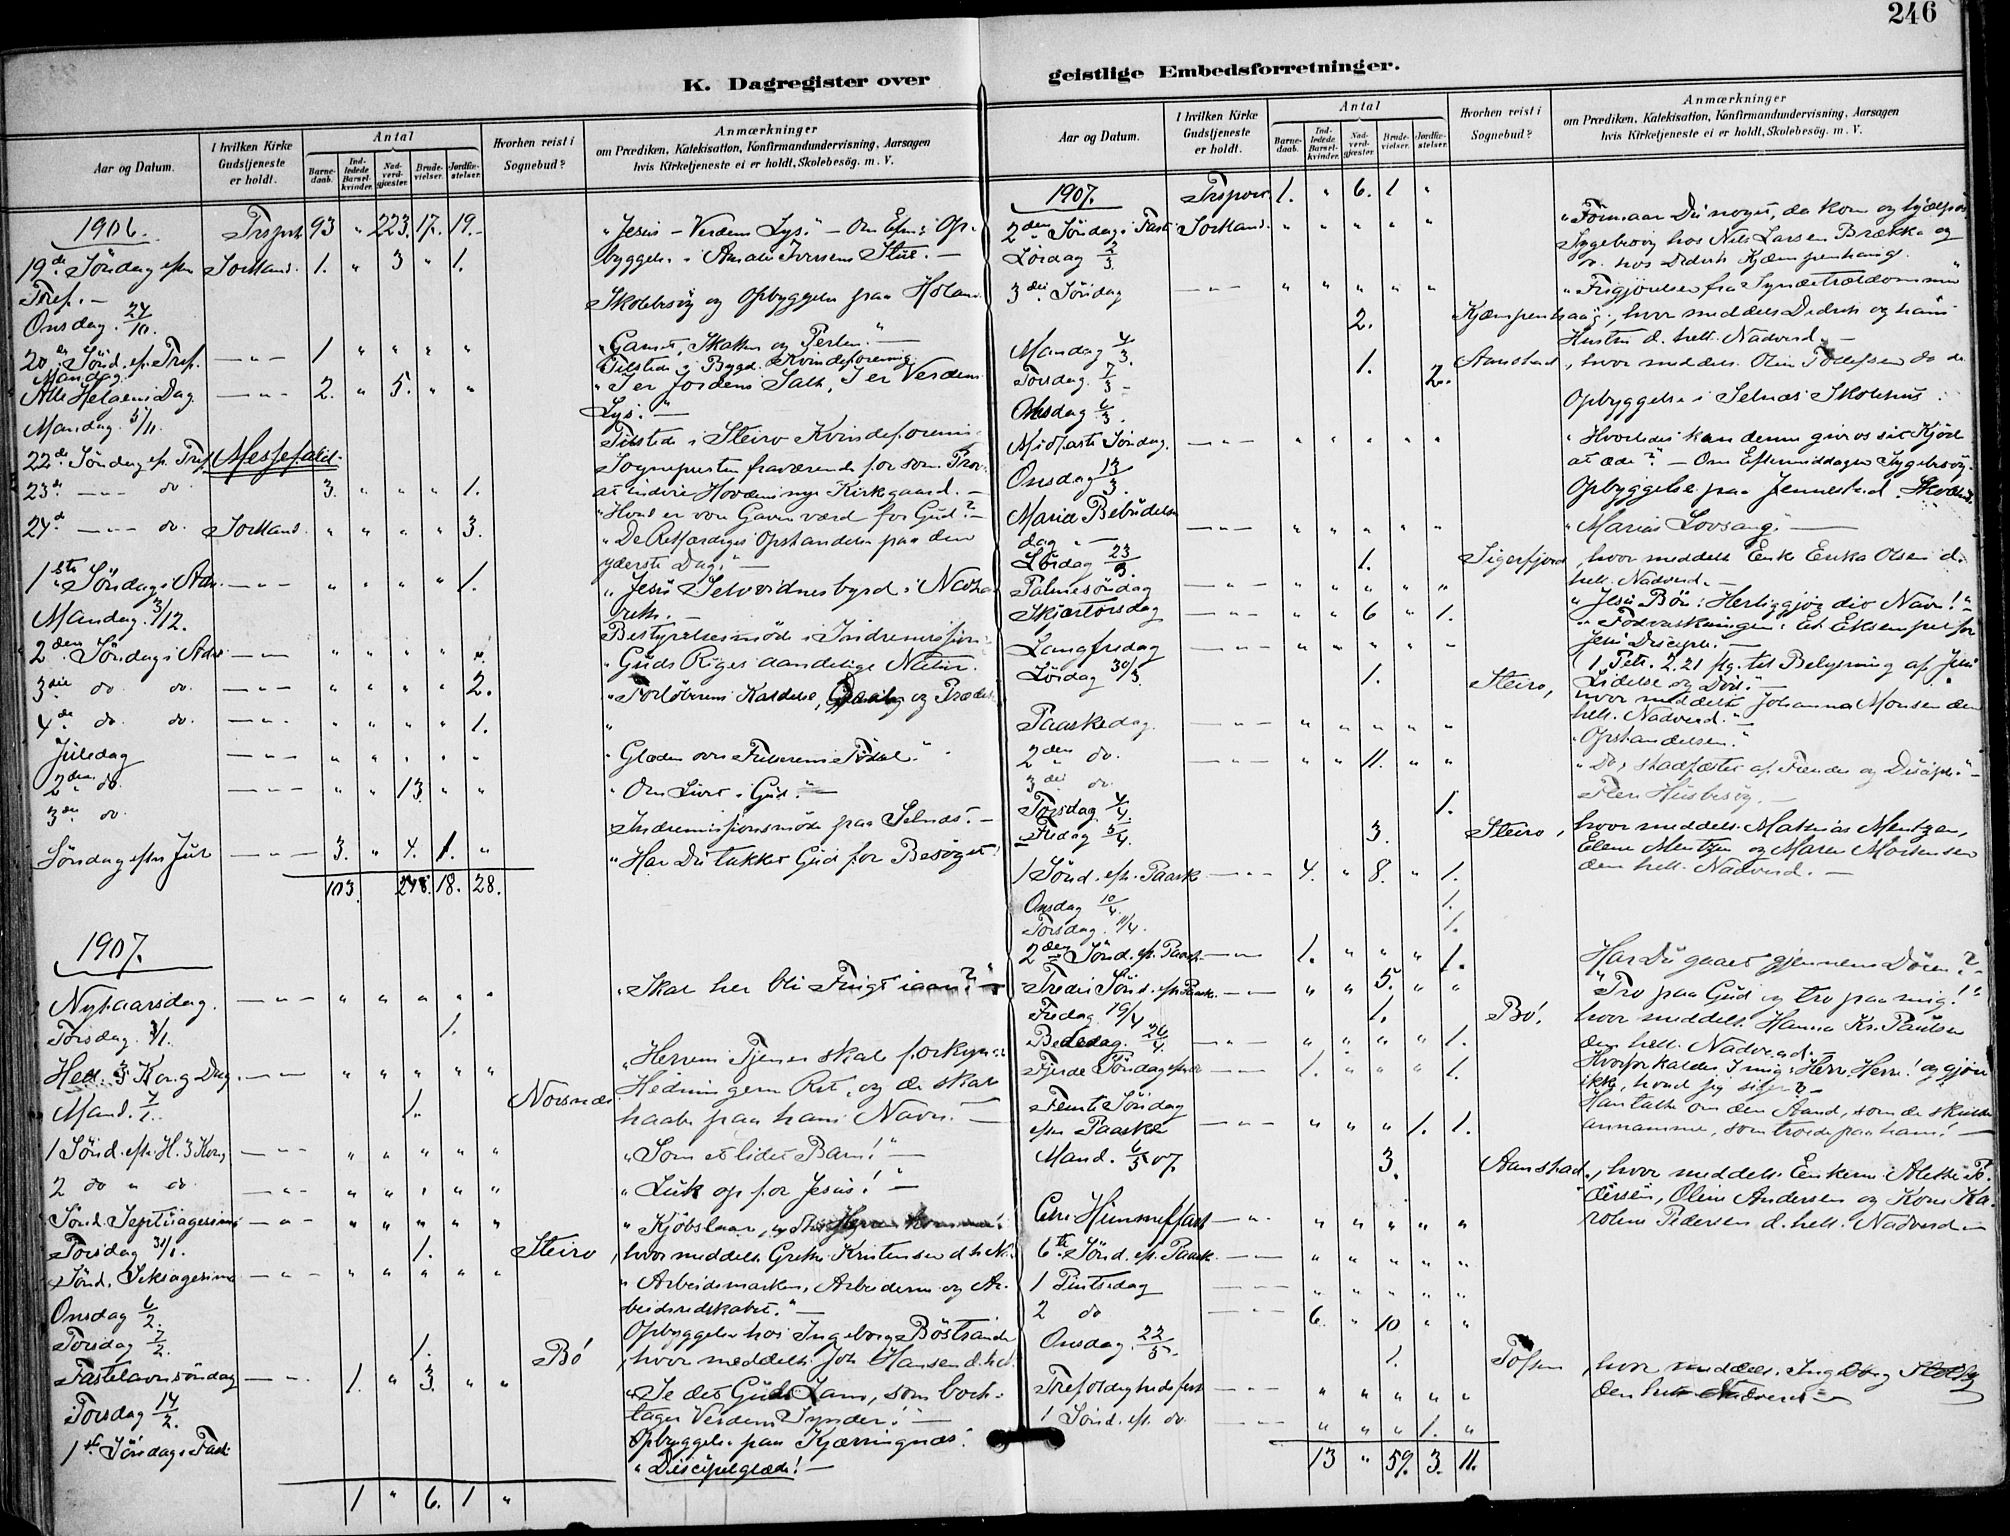 246
K. Dagregister over
Aar og Datum.
I hvilken Kirke Gudstjeneste er holdt.
Antal
Barnedaab.
Indledede Barselkvinder.
Nadverdgjæster.
Brudevielser.
Jordfæstelser.
Hvorhen reist i Sognebud?
Anmærkninger
om Prædiken, Katekisation, Konfirmandundervisning, Aarsagen
hvis Kirketjeneste ei er holdt, Skolebesøg. m. V.
1906. Trsprt. 93 " 223. 17. 19.
19de Søndag efter Sortland. 1. " 3 " 1. "Jesus - Verdens Lys." - Om Efm: Op-
Tref. - byggelse i Amalie Iversens Stue. -
Onsdag 24/10. Skolebesøg og Opbyggelse paa Holand
20de Sønd. ef. Tref. - " - 1 " " " "
Mandag
Alle Helgens Dag - " - 2. " 5. " " "I er Jordens Salt, I er Verdens
Lys." -
Mandag 5/11. Tilstede i Steiro Kvindeforening
22de Søndag ef. Tref. Messefald.
23de - " - do 3. " " " 1. at indvie Hovdens nye Kirkegaard. -
24d - " - do. Sortland " " " " 3.
yderste Dag." -
1ste Søndag i Adv. - " - " " " " 1. "Jesu Selvvidnesbyrd i Naza-
reth. -
Mandag 3/12. Bestyrelsesmøde i Indremissionen
2den Søndag i Adv - " - " " " " " "Guds Riges aandelige Natur.
3die do. do. - " - " " " " 2.
4de do. do. - " - " " " " 1.
Juledag - " - " " " " " "Glæden over Frelserens Fødsel."
2den do. - " - " " 13. " " "Om Livet i Gud." -
3die do. Indremissionsmøde paa Selnæs. -
Søndag efter Jul - " - 3. " 4. 1. " "Har Du takket Gud for Besøget?
103. 248. 18. 28.
1907.
Nytaarsdag. - " - " " " " " "Skal her bli Frugt iaar?" -
Torsdag 3/1. 1.
Hell. 3 Kong Dag. - " - " " " " " "Herrens Tjener skal forkynde
Hedningerne Ret, og de skal
Mand. 7/1. 1. Norsnæs haabe paa hans Navn. -
1 Sønd. efr. H. 3 Kong - " - " " " " " "Som et lidet Barn!" -
2 do " do - " - " " " " " "Luk op for Jesus! -
Sønd. Septuagesima - " - " " " " "
Torsdag 31/1. 1. Steiro, hvor meddelt Grethe Kristensen d. h. N.
Sønd. Seksagesima - " - " " " " " "Arbeidsmarken, Arbeiderne og Ar-
beidsredskabet." -
Onsdag 6/2. Opbyggelse hos Ingeborg Bøstrand
Torsdag 7/2. 1. Bø, hvor meddelt Joh Hansen d. hel.
Fastelavnssøndag - " - 1. " 3. " " "Se det Guds Lam, som bort-
tager Verdens Synder! -
Torsdag 14/2. Opbyggelse paa Kjærringnæs.
1ste Søndag i Fast. "Discipelglæde! -
1 " 6. 1 "
geistlige Embedsforretninger.
Aar og Datum.
I hvilken Kirke Gudstjeneste er holdt.
Antal
Barnedaab.
Indledede Barselkvinder.
Nadverdgjæster.
Brudevielser.
Jordfæstelser.
Hvorhen reist i Sognebud?
Anmærkninger
om Prædiken, Katekisation, Konfirmandundervisning, Aarsagen
hvis Kirketjeneste ei er holdt, Skolebesøg. m. V.
1907. Trsport. 1. " 6. 1 "
2den Søndag i Fast. Sortland. " " " " " "Formaar Du noget, da kom og hjælp os
Lørdag 2/3. Sygebesøg hos Nils Larsen Brække og
do. hos Didrik Kjæmpenhaug.
3die Søndag - " - " " " " " "Frigjørelse fra Syndetrældommen"
Mandag 4/3. 2. Kjæmpenhaug, hvor meddelt Didrik og hans
Hustru d. hell. Nadverd. -
Torsdag 7/3 - 1. 2. Aanstad, hvor meddelt Olin
Onsdag 6/3. Opbyggelse i Selnæs Skolehus.
Midfaste Søndag. - " - " " " " " "Hvorledes kan denne give os sit Kjød
at æde?" - Om Eftermiddagen Sygebesøg.
Onsdag 13/3. Opbyggelse paa Jennestad.
Maria Bebudelses- - " - " " " " " "Marias Lovsang." -
dag. -
Lørdag 23/3. 1. Sigerfjord, hvor meddelt Enke Erika Olsen d.
hell. Nadverd. -
Palmesøndag - " - " " " " " "Jesu Bøn: Herliggjør dit Navn!" -
Skjærtorsdag - " - " " 6 " 1. "Fodvaskningen: Et Eksempel for
Jesu Disciple. -
Langfredag - " - " " " " " 1 Petr. 2.21 flg. til Belysning af Jesu
Lidelse og Død." -
Lørdag 30/3. 1. Steiro, hvor meddelt Johanna Monsen den
hell. Nadverd." -
Paaskedag. - " - " " " " " "Opstandelsen." -
2den do. - " - " " 11. " " "Do, stadfæstet af Fiender og Disciple" -
3die do. Flere Husbesøg. -
Torsdag 4/4. 1.
Fredag 5/4. 3. Steiro, hvor meddelt Mathias Mentzen,
Elene Mentzen og Maren Mortensen
den hell. Nadverd. -
1 Sønd. eft. Paaske - " - 4. " 8. " 1.
Onsdag 10/4. 1.
Torsdag. 11/4. 1.
2den Sønd. ef. Paaske - " - 1. " " " 1. Har Du gaaet gjennem Døren? -
Tredie Sønd. eft Paaske. - " - " " 5. " " "Tro paa Gud og tro paa mig!"
Fredag. 19/4 1. Bø, hvor meddelt Hanna Kr. Paulsen
den hell. Nadverd. -
Bededag. 26/4. - " - " " " " 1. Hvorfor kalder I mig: Herre, Herre! og gjør
ikke, hvad jeg siger? -
Fjerde Søndag eft do - " - 1. " " " 1. Han talte om den Aand, som de skulde
annamme, som troede paa ham! -
Femte Søndag
efter Paaske - " - " " " 1. 1.
Mand. 6/5 07. 3. Aanstad, hvor meddelt Enkerne Alethe
Oline Andersen og Kone Ka-
roline Pedersen d. hell. Nadverd -
Chr. Himmelfart - " - " " " " "
6te Sønd. ef. Paaske. - " - " " " " "
1 Pintsedag - " - " " " " "
2 do - " - 6. " 10 " "
Onsdag 22/5. 1. hvor meddelt Ingeborg
den hell. Nadverd -
Trefoldighedsfest - " - " " " " "
1 Sønd. ef. do. - " - " " " 1. "
13 " 59. 3. 11.